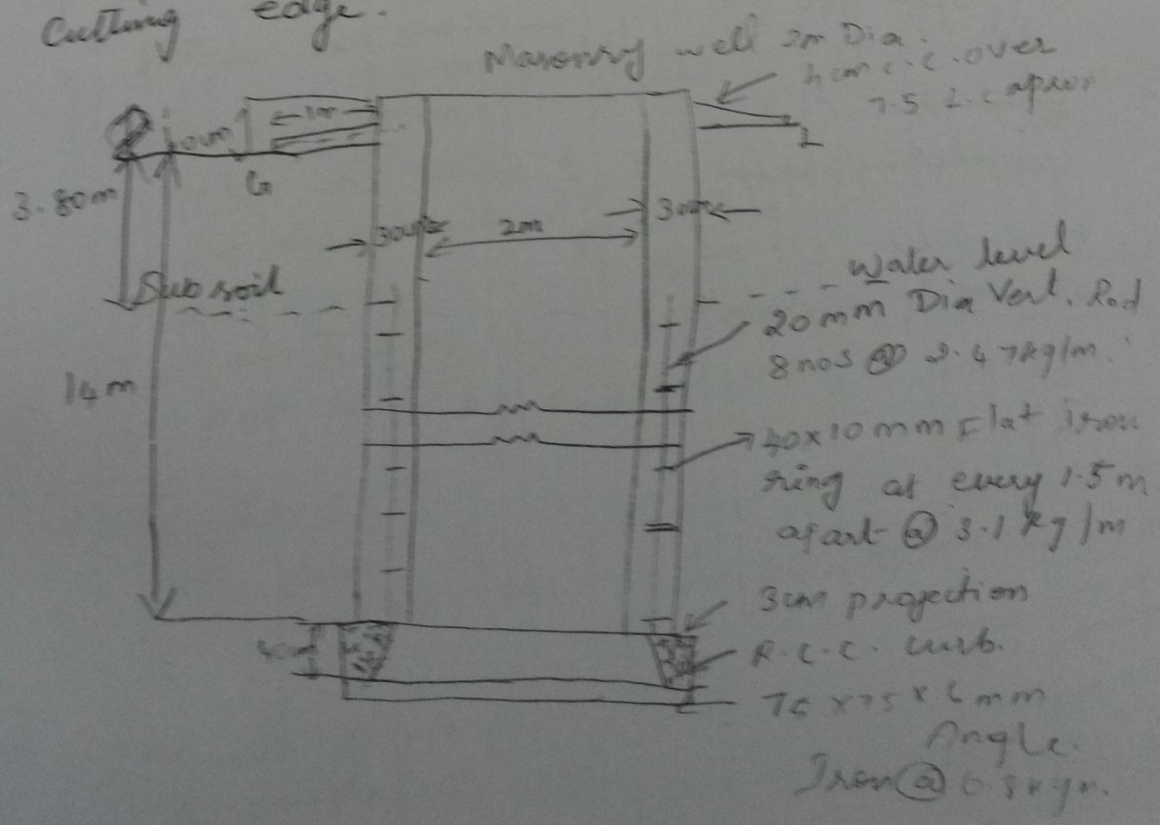 Cutting edge.
Masonry well 2m Dia.
c.c. over
7.5 L.C apron
1m
3.80m
G
L
30cm
2m
30cm
Sub soil
Water level
20mm Dia Vert. Rod
8 nos @ 2.47kg/m.
14m
40x10mm Flat iron
ring at every 1.5m
apart @ 3.1 kg/m
3cm projection
R.C.C. curb.
75 x 75 x 6 mm
Angle
Iron @